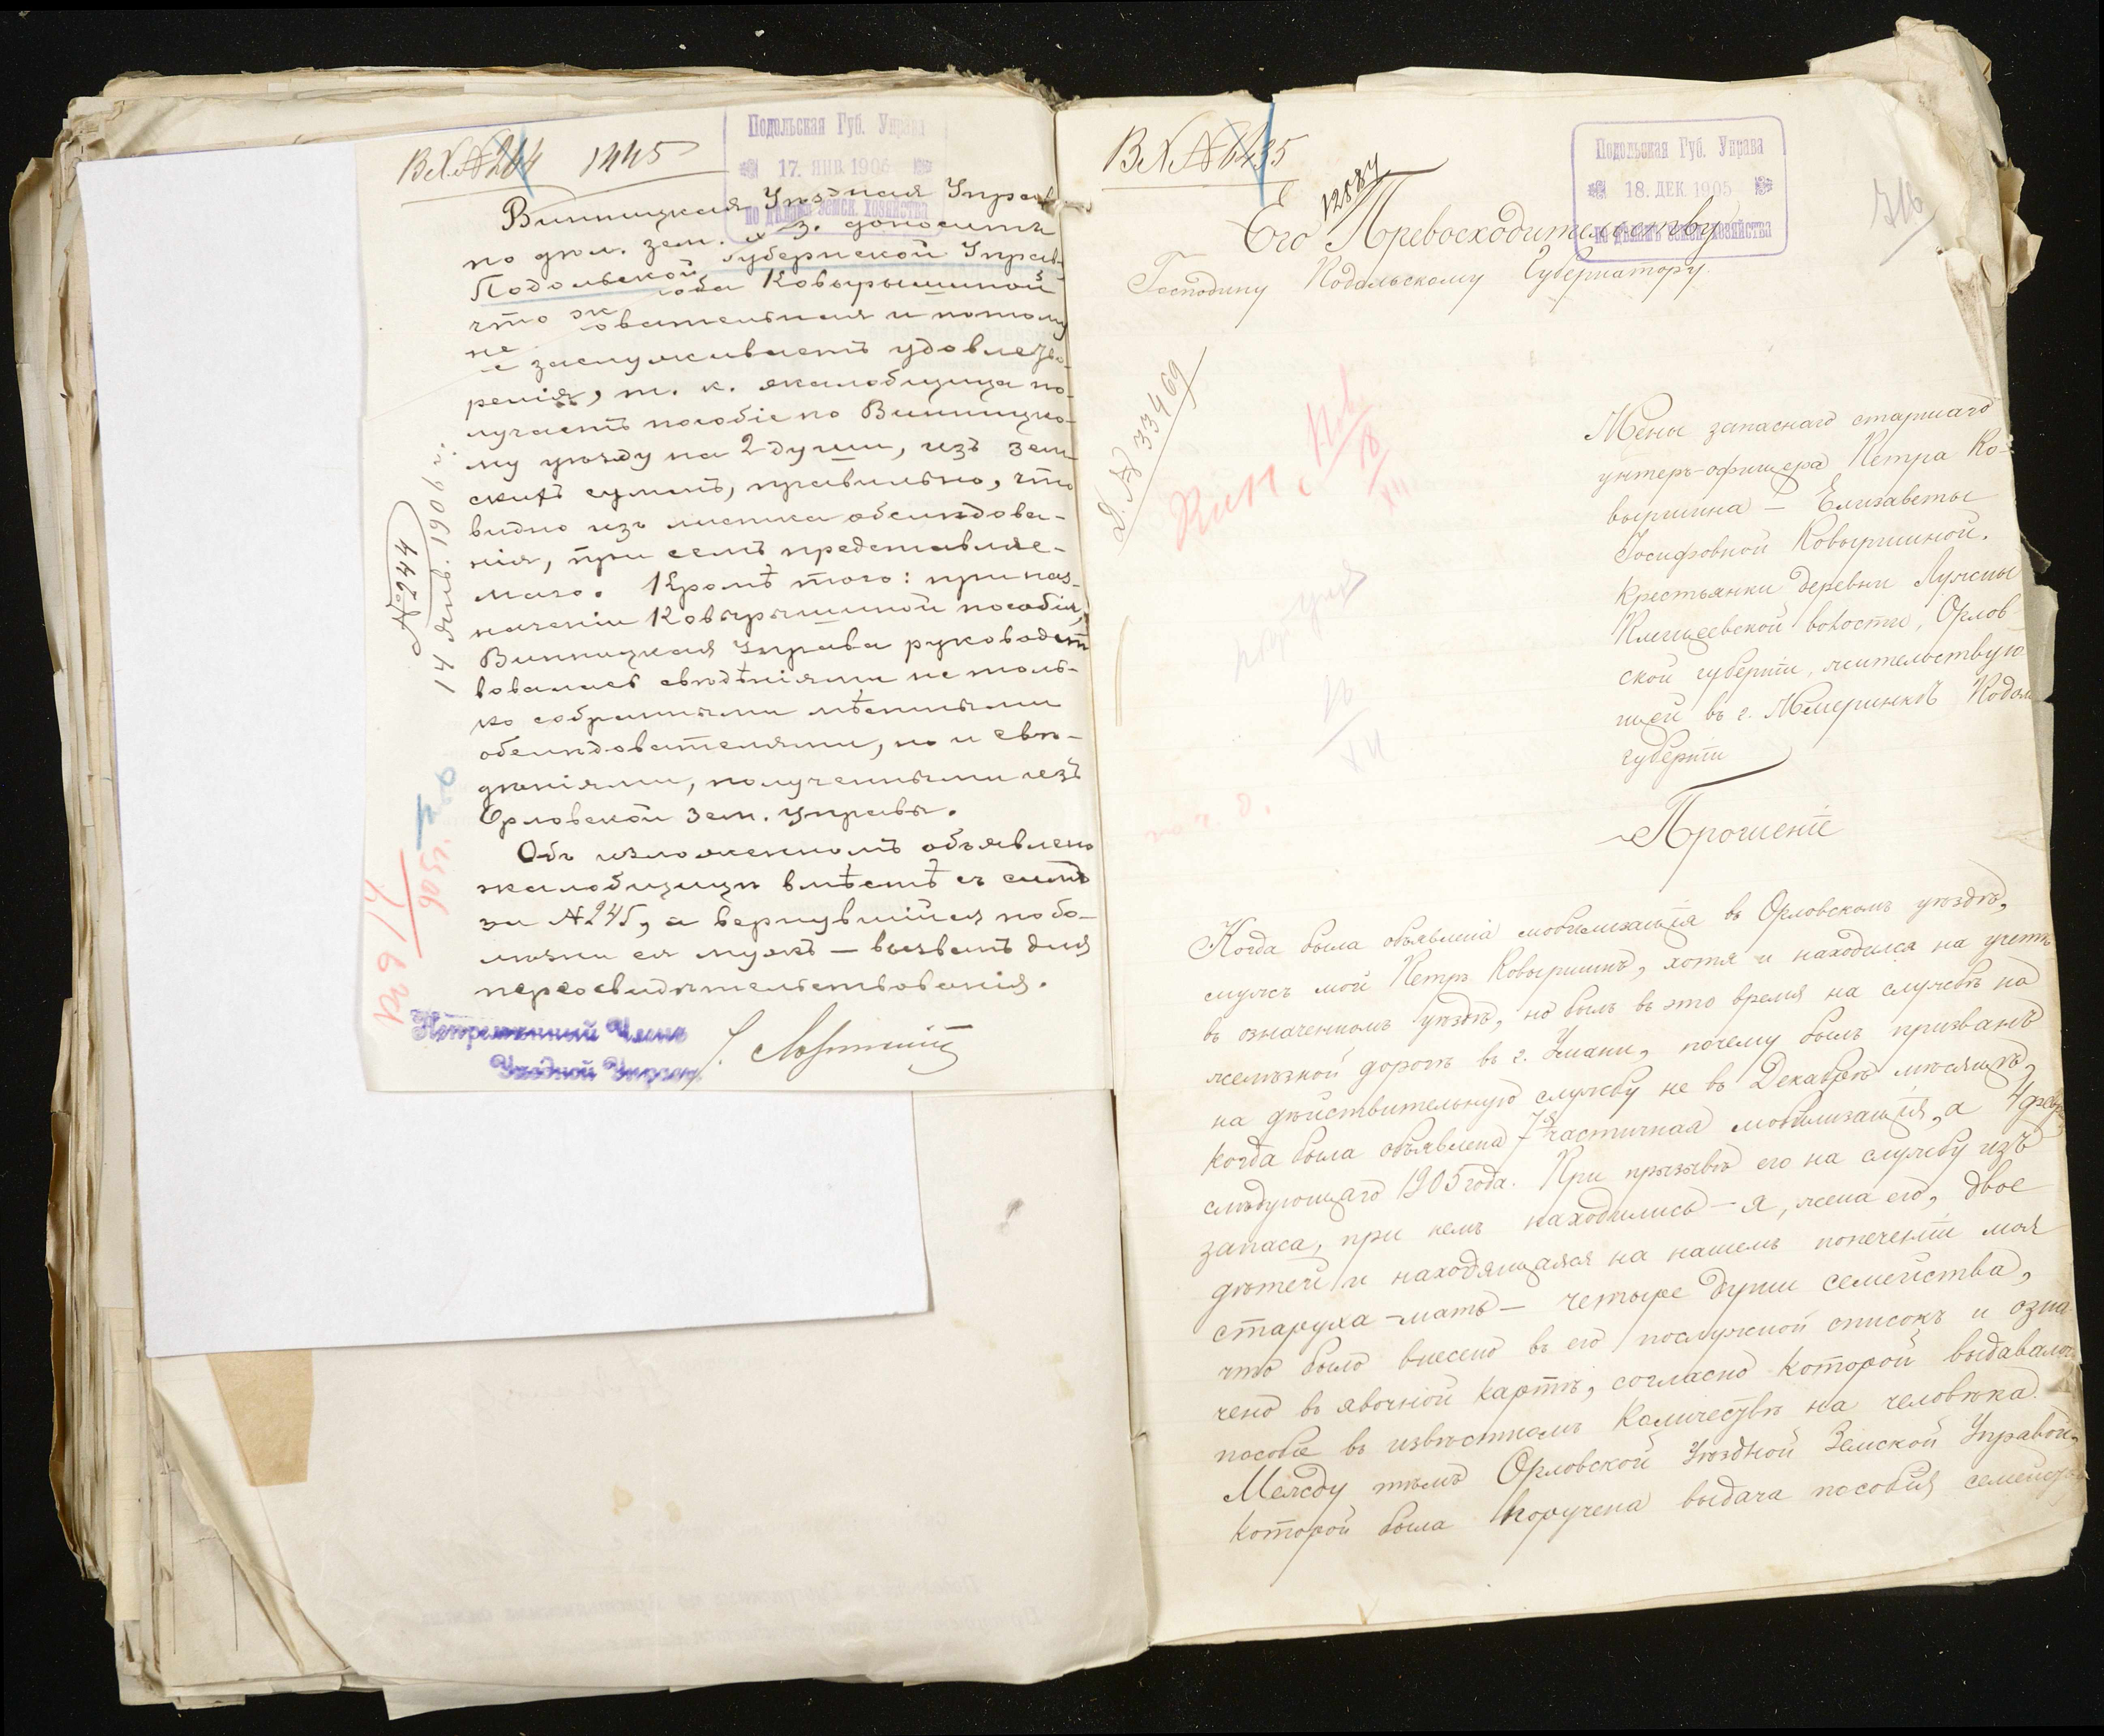 Вх. № 244 1445
Подольская Губ. Управа
17. ЯНВ. 1906
по дѣламъ земск. хозяйства
Винницкая Уѣздная Управа
по дѣл. зем. х-3. доноситъ
Подольской Губернской Управѣ,
что жалоба Ковыршиной
не овательная и потому
не заслуживаетъ удовлетво-
ренія, т. к. жалобщица по-
лучаетъ пособіе по Винницко-
му уѣзду на 2 души, изъ зем-
скихъ суммъ, правильно, что
видно изъ листка обслѣдова-
нія, при семъ представляе-
маго. Кромѣ того: при наз-
наченіи Ковыршиной пособія,
Винницкая Управа руководст
вовалась свѣдѣніями не толь-
ко собранными мѣстными
обслѣдователями, но и свѣ-
дѣніями, полученными изъ
Орловской Зем. Управы.
Объ изложенномъ объявлено
жалобщицѣ вмѣстѣ съ симъ
за № 245, а вернувшійся по бо-
лѣзни ея мужъ – вызванъ для
переосвидѣтельствованія.
Непремѣнный Членъ
Уѣздной Управы
№ 244
14 янв. 1906 г.
Вх. № 6435
12887
Подольская Губ. Управа
18. ДЕК. 1905
по дѣламъ земск. хозяйства
716
Его Превосходительству
Господину Подольскому Губернатору.
Д. № 33469
18
XII
Жены запаснаго старшаго
унтеръ-офицера Петра Ко-
выршина – Елизаветы
Іосифовной Ковыршиной,
крестьянки деревни Лужны
Клещеевской волости, Орлов-
ской губерніи, жительствую-
щей въ г. Жмеринкѣ Подол
губерніи
Прошеніе
Когда была объявлена мобилизація въ Орловскомъ уѣздѣ,
мужъ мой Петръ Ковыршинъ, хотя и находился на учетѣ
въ означенномъ уѣздѣ, но былъ въ это время на службѣ на
желѣзной дорогѣ въ г. Умани, почему былъ призванъ
на дѣйствительную службу не въ Декабрѣ мѣсяцѣ,
когда была объявлена 7я частичная мобилизація, а 4 февр
слѣдующаго 1905 года. При призывѣ его на службу изъ
запаса, при немъ находились – я, жена его, двое
дѣтей и находящаяся на нашемъ попеченіи моя
старуха-мать – четыре души семейства,
что было внесено въ его послужной списокъ и озна
чено въ явочной картѣ, согласно которой выдавалось
пособіе въ извѣстномъ количествѣ на человѣка.
Между тѣмъ Орловской Уѣздной Земской Управой,
которой была поручена выдача пособія семейств